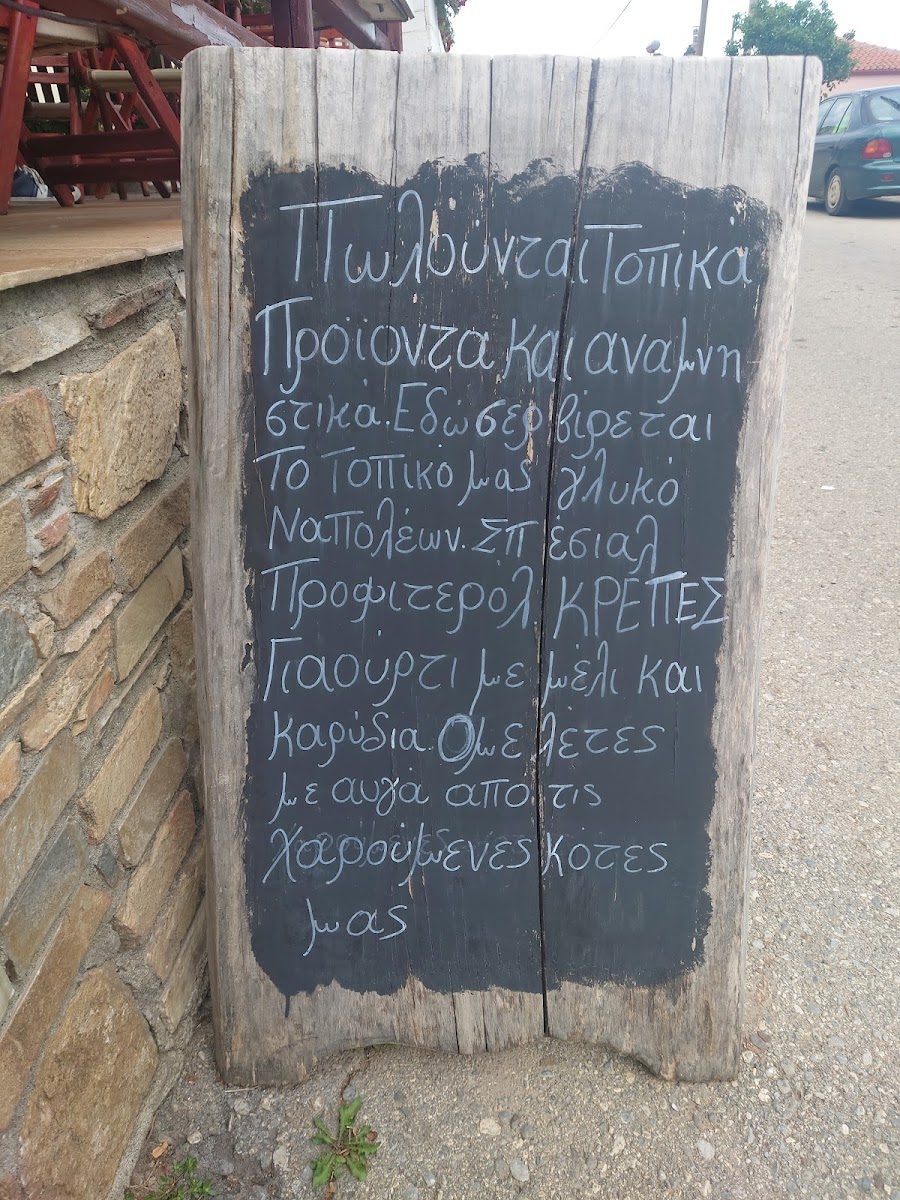 Πωλούνται Τοπικά
Προϊοντα και αναμνη
στικά. Εδώ σερβίρεται
Το Τοπικό μας γλυκό
Ναπολέων. Σπέσιαλ
Προφιτερόλ ΚΡΕΠΕΣ
Γιαουρτι με μέλι και
καρύδια. Ομελέτες
με αυγά από τις
χαρούμενες κότες
μας